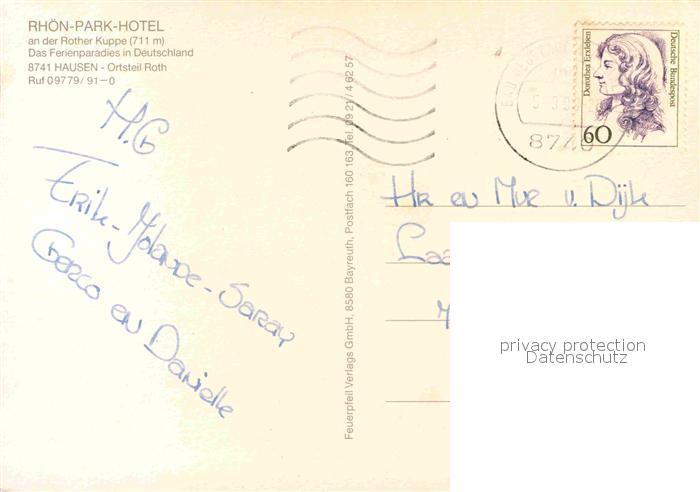 RHÖN-PARK-HOTEL
an der Rother Kuppe (711 m)
Das Ferienparadies in Deutschland
8741 HAUSEN - Ortsteil Roth
Ruf 09779/91-0
H.G
Erik-Yolande-Saray
Gerco en Danielle
Feuerpfeil Verlags GmbH, 8580 Bayreuth, Postfach 160 163, Tel. 09 21 / 4 62 57
Dorothea Erxleben
Deutsche Bundespost
60
Hr en Mvr v. Dijk
privacy protection
Datenschutz